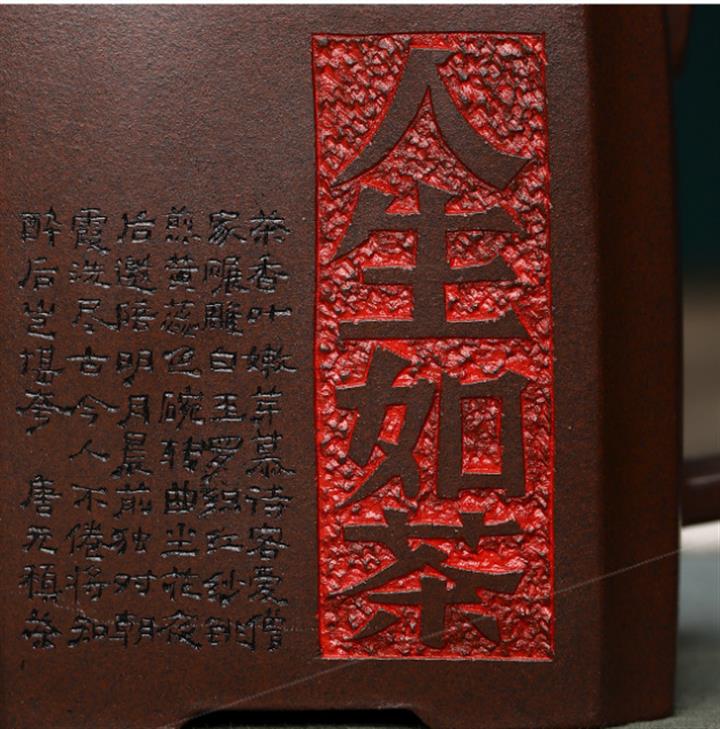 人生如茶
茶香叶嫩芽慕诗客爱僧
家雕雕白玉罗织红纱铫
煎黄蕊色碗转曲尘花夜
后邀陪明月晨前独对朝
霞洗尽古今人不倦将知
醉后岂堪夸 唐元稹茶